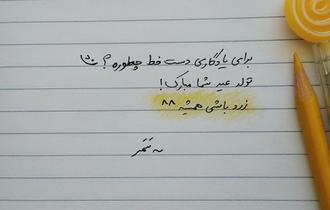 برای یادگاری دست خط چطوره؟
تولد عید شما مبارک!
زرد باشی همیشه ^^